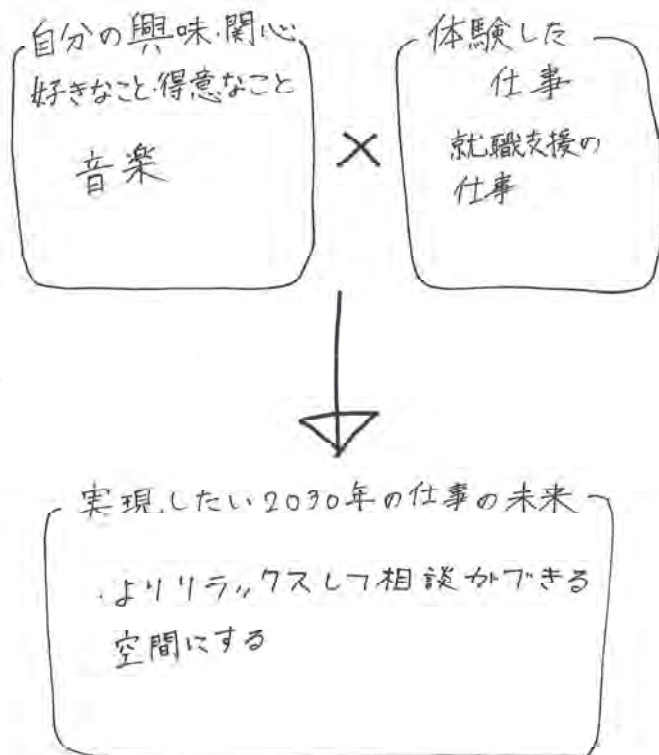 自分の興味・関心
好きなこと・得意なこと
音楽
×
体験した
仕事
就職支援の
仕事
実現したい2030年の仕事の未来
・よりリラックスして相談ができる
空間にする